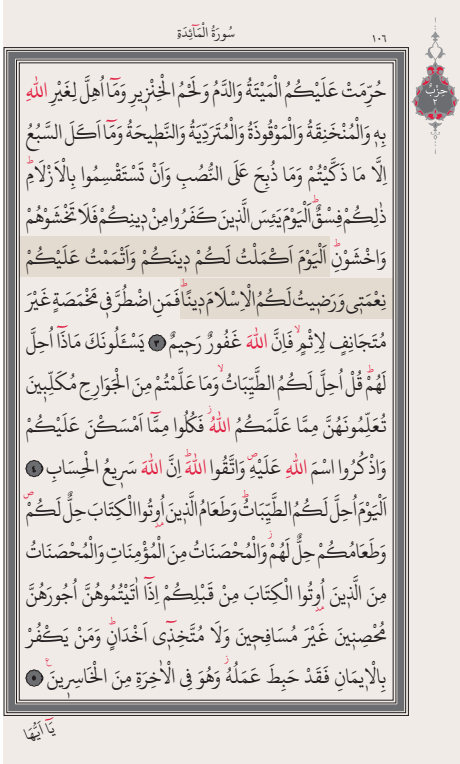 سُورَةُ الْمَائِدَةِ
١٠٦
حِزْبُ
٢
حُرِّمَتْ عَلَيْكُمُ الْمَيْتَةُ وَالدَّمُ وَلَحْمُ الْخِنْزٖيرِ وَمَٓا اُهِلَّ لِغَيْرِ اللّٰهِ
بِهٖ وَالْمُنْخَنِقَةُ وَالْمَوْقُوذَةُ وَالْمُتَرَدِّيَةُ وَالنَّطٖيحَةُ وَمَٓا اَكَلَ السَّبُعُ
اِلَّا مَا ذَكَّيْتُمْ وَمَا ذُبِحَ عَلَى النُّصُبِ وَاَنْ تَسْتَقْسِمُوا بِالْاَزْلَامِؕ
ذٰلِكُمْ فِسْقٌؕ اَلْيَوْمَ يَئِسَ الَّذٖينَ كَفَرُوا مِنْ دٖينِكُمْ فَلَا تَخْشَوْهُمْ
وَاخْشَوْنِؕ اَلْيَوْمَ اَكْمَلْتُ لَكُمْ دٖينَكُمْ وَاَتْمَمْتُ عَلَيْكُمْ
نِعْمَتٖى وَرَضٖيتُ لَكُمُ الْاِسْلَامَ دٖينًاؕ فَمَنِ اضْطُرَّ فٖى مَخْمَصَةٍ غَيْرَ
مُتَجَانِفٍ لِاِثْمٍۙ فَاِنَّ اللّٰهَ غَفُورٌ رَحٖيمٌ ﴿٣﴾ يَسْـَٔلُونَكَ مَاذَٓا اُحِلَّ
لَهُمْؕ قُلْ اُحِلَّ لَكُمُ الطَّيِّبَاتُۙ وَمَا عَلَّمْتُمْ مِنَ الْجَوَارِحِ مُكَلِّبٖينَ
تُعَلِّمُونَهُنَّ مِمَّا عَلَّمَكُمُ اللّٰهُؗ فَكُلُوا مِمَّٓا اَمْسَكْنَ عَلَيْكُمْ
وَاذْكُرُوا اسْمَ اللّٰهِ عَلَيْهِࣕ وَاتَّقُوا اللّٰهَؕ اِنَّ اللّٰهَ سَرٖيعُ الْحِسَابِ ﴿٤﴾
اَلْيَوْمَ اُحِلَّ لَكُمُ الطَّيِّبَاتُؕ وَطَعَامُ الَّذٖينَ اُو۫تُوا الْكِتَابَ حِلٌّ لَكُمْࣕ
وَطَعَامُكُمْ حِلٌّ لَهُمْؗ وَالْمُحْصَنَاتُ مِنَ الْمُؤْمِنَاتِ وَالْمُحْصَنَاتُ
مِنَ الَّذٖينَ اُو۫تُوا الْكِتَابَ مِنْ قَبْلِكُمْ اِذَٓا اٰتَيْتُمُوهُنَّ اُجُورَهُنَّ
مُحْصِنٖينَ غَيْرَ مُسَافِحٖينَ وَلَا مُتَّخِذٖٓى اَخْدَانٍؕ وَمَنْ يَكْفُرْ
بِالْاٖيمَانِ فَقَدْ حَبِطَ عَمَلُهُؗ وَهُوَ فِى الْاٰخِرَةِ مِنَ الْخَاسِرٖينَࣖ ﴿٥﴾
يَٓا اَيُّهَا